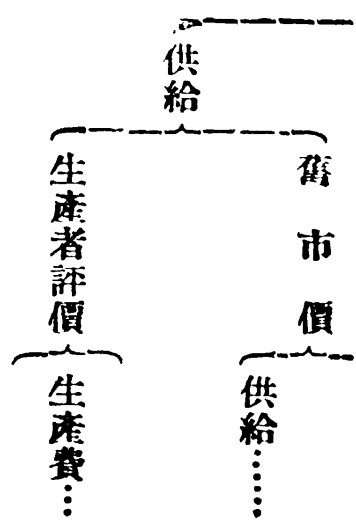 供給
舊市價
生產者評價
供給……
生產費…